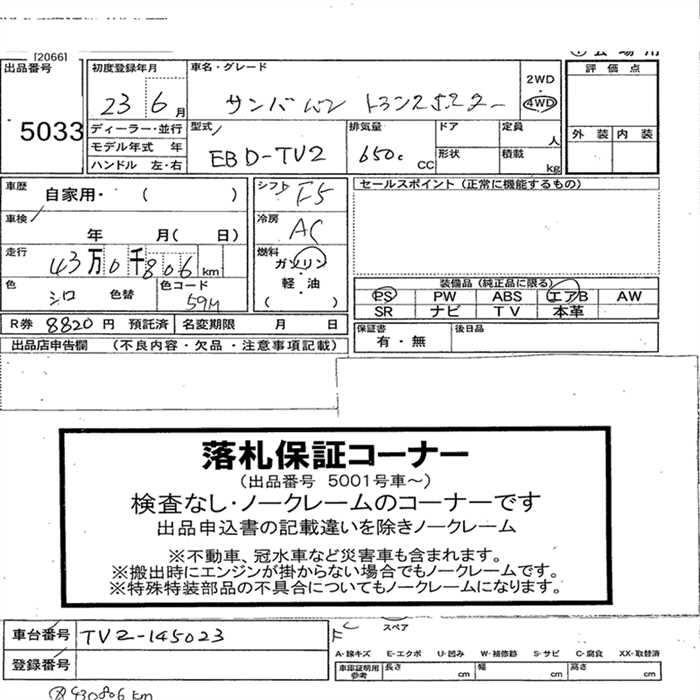 [2066]
出品番号
5033
初度登録年月
23 6月
車名・グレード
サンバーVAN トランスポーター
2WD
4WD
会場用
評価点
外装 内装
ディーラー・並行
モデル年式 年
ハンドル 左・右
型式
EBD-TV2
排気量
650c CC
ドア
形状
定員
人
積載
kg
車歴
自家用・ ( )
車検
年 月( 日)
走行
43万0千806km
色
シロ
色替
色コード
59M
シフト
F5
冷房
AC
燃料
ガソリン
・
軽・油
( )
セールスポイント (正常に機能するもの)
装備品 (純正品に限る)
PS PW ABS エアB AW
SR ナビ TV 本革
R券 8820円 預託済
名変期限 月 日
保証書
有・無
後日品
出品店申告欄 (不良内容・欠品・注意事項記載)
落札保証コーナー
(出品番号 5001号車~)
検査なし・ノークレームのコーナーです
出品申込書の記載違いを除きノークレーム
※不動車、冠水車など災害車も含まれます。
※搬出時にエンジンが掛からない場合でもノークレームです。
※特殊特装部品の不具合についてもノークレームになります。
車台番号 TV2-145023
登録番号
スペア
A-線キズ E-エクボ U-凹み W-補修跡 S-サビ C-腐食 XX-取替済
車庫証明用
参考
長さ cm 幅 cm 高さ cm
430806km